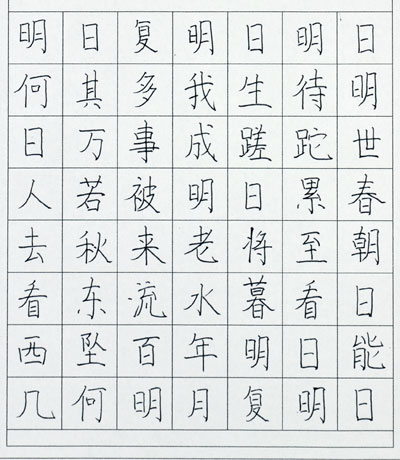 明日复明日明日
何其多我生待明
日万事成蹉跎世
人若被明日累春
去秋来老将至朝
看东流水暮看日
西坠百年明日能
几何明月复明日